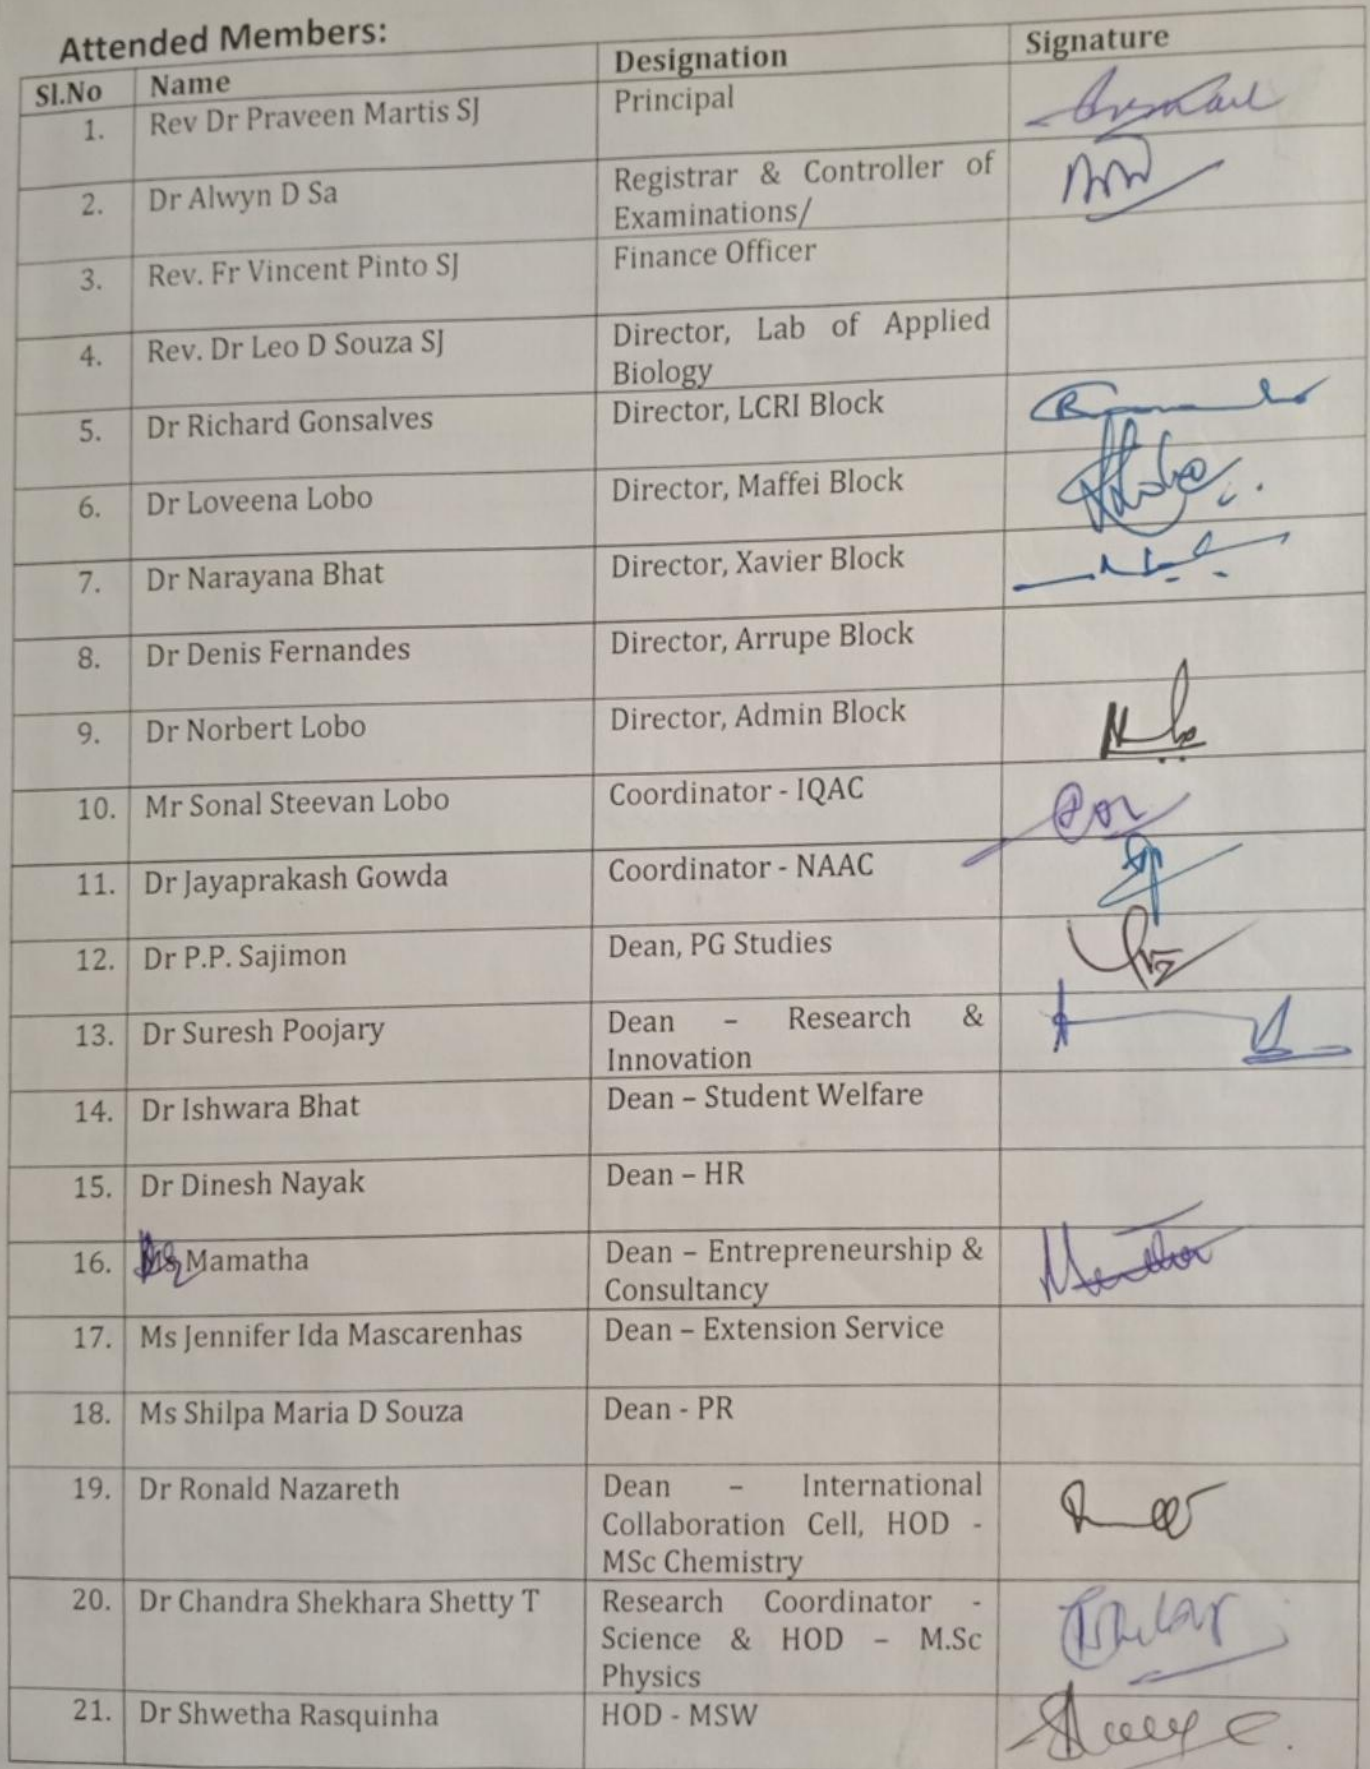 Attended Members:
Sl.No Name Designation Signature
1. Rev Dr Praveen Martis SJ Principal
2. Dr Alwyn D Sa Registrar & Controller of
Examinations/
3. Rev. Fr Vincent Pinto SJ Finance Officer
4. Rev. Dr Leo D Souza SJ Director, Lab of Applied
Biology
5. Dr Richard Gonsalves Director, LCRI Block
6. Dr Loveena Lobo Director, Maffei Block
7. Dr Narayana Bhat Director, Xavier Block
8. Dr Denis Fernandes Director, Arrupe Block
9. Dr Norbert Lobo Director, Admin Block
10. Mr Sonal Steevan Lobo Coordinator - IQAC
11. Dr Jayaprakash Gowda Coordinator - NAAC
12. Dr P.P. Sajimon Dean, PG Studies
13. Dr Suresh Poojary Dean – Research &
Innovation
14. Dr Ishwara Bhat Dean – Student Welfare
15. Dr Dinesh Nayak Dean – HR
16. Mamatha Dean – Entrepreneurship &
Consultancy
17. Ms Jennifer Ida Mascarenhas Dean – Extension Service
18. Ms Shilpa Maria D Souza Dean - PR
19. Dr Ronald Nazareth Dean – International
Collaboration Cell, HOD -
MSc Chemistry
20. Dr Chandra Shekhara Shetty T Research Coordinator -
Science & HOD – M.Sc
Physics
21. Dr Shwetha Rasquinha HOD - MSW